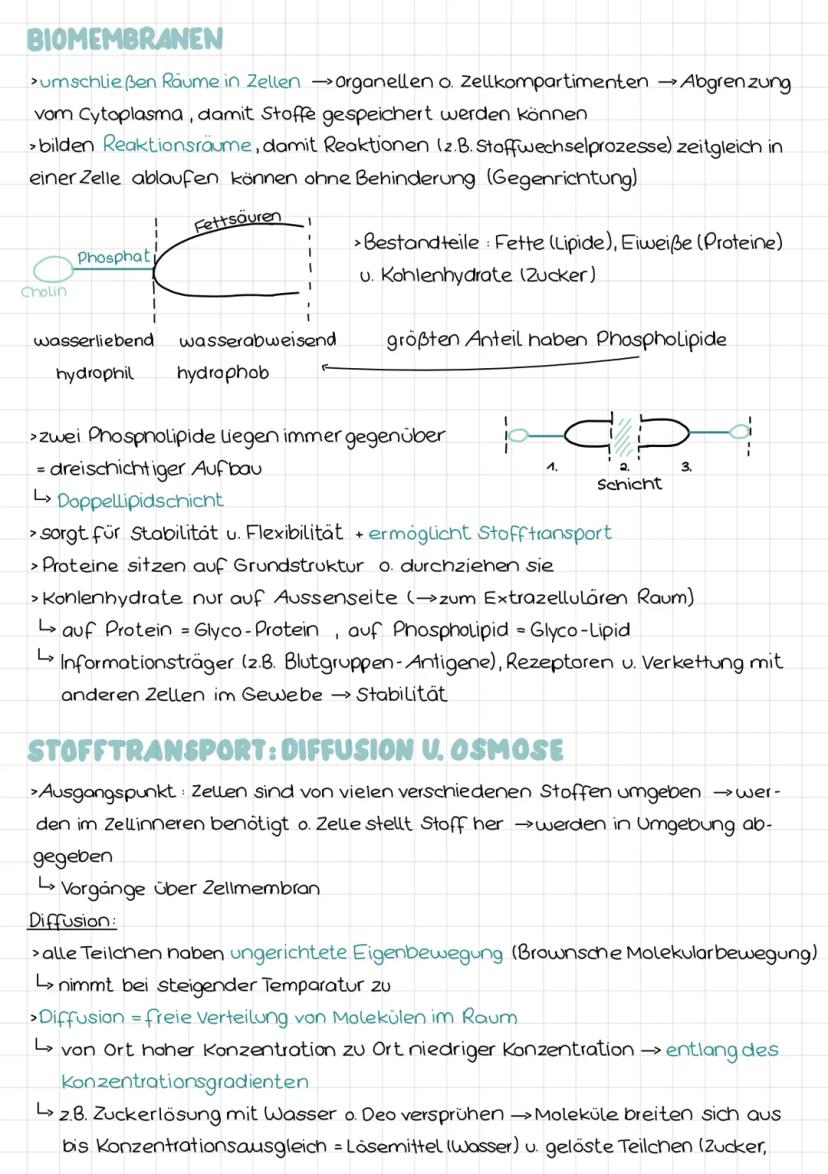 BIOMEMBRANEN
>umschließen Räume in Zellen →Organellen o. Zellkompartimenten → Abgrenzung
vom Cytoplasma, damit Stoffe gespeichert werden können
>bilden Reaktionsräume, damit Reaktionen (z.B. Stoffwechselprozesse) zeitgleich in
einer Zelle ablaufen können ohne Behinderung (Gegenrichtung)
Fettsäuren
Phosphat
Cholin
>Bestandteile : Fette (Lipide), Eiweiße (Proteine)
u. Kohlenhydrate (Zucker)
wasserliebend wasserabweisend größten Anteil haben Phospholipide
hydrophil hydrophob
>zwei Phospholipide liegen immer gegenüber
= dreischichtiger Aufbau
1. 2. 3.
Schicht
↳ Doppellipidschicht
>sorgt für Stabilität u. Flexibilität + ermöglicht Stofftransport
>Proteine sitzen auf Grundstruktur o. durchziehen sie
>Kohlenhydrate nur auf Aussenseite (→zum Extrazellulären Raum)
↳ auf Protein = Glyco-Protein , auf Phospholipid = Glyco-Lipid
↳ Informationsträger (z.B. Blutgruppen-Antigene), Rezeptoren u. Verkettung mit
anderen Zellen im Gewebe → Stabilität
STOFFTRANSPORT: DIFFUSION U. OSMOSE
>Ausgangspunkt : Zellen sind von vielen verschiedenen Stoffen umgeben →wer-
den im Zellinneren benötigt o. Zelle stellt Stoff her →werden in Umgebung ab-
gegeben
↳ Vorgänge über Zellmembran
Diffusion:
>alle Teilchen haben ungerichtete Eigenbewegung (Brownsche Molekularbewegung)
↳ nimmt bei steigender Temperatur zu
>Diffusion = freie Verteilung von Molekülen im Raum
↳ von Ort hoher Konzentration zu Ort niedriger Konzentration → entlang des
Konzentrationsgradienten
↳ z.B. Zuckerlösung mit Wasser o. Deo versprühen →Moleküle breiten sich aus
bis Konzentrationsausgleich = Lösemittel (Wasser) u. gelöste Teilchen (Zucker,